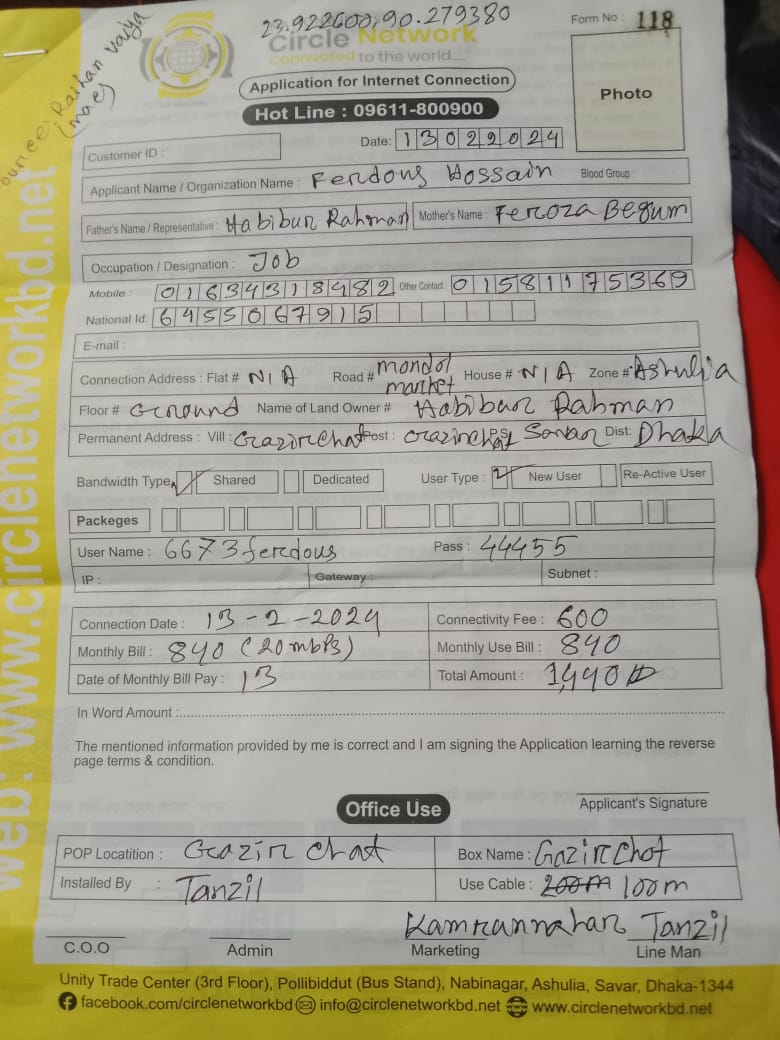 23.922600,90.279380
Form No : 118
Raihan vaiya
(mac)
Circle Network
Connected to the world....
Application for Internet Connection
Hot Line : 09611-800900
Photo
Date: 13022024
Customer ID :
Applicant Name / Organization Name : Ferdous Hossain Blood Group
Father's Name / Representative : Habibur Rahman Mother's Name : Feroza Begum
Occupation / Designation : Job
Mobile : 01634318482 Other Contact 01581175369
National Id: 6455067915
E-mail :
Connection Address : Flat # N/A Road # mondol market House # N/A Zone # Ashulia
Floor # Ground Name of Land Owner # Habibur Rahman
Permanent Address : Vill : Gazirchat Post : Gazirchat PS: Savar Dist: Dhaka
Bandwidth Type Shared Dedicated User Type : New User Re-Active User
Packeges
User Name : 6673ferdous Pass : 44455
IP : Gateway : Subnet :
Connection Date : 13-2-2024 Connectivity Fee : 600
Monthly Bill : 840 (20mbps) Monthly Use Bill : 840
Date of Monthly Bill Pay : 13 Total Amount : 1,440
In Word Amount :
The mentioned information provided by me is correct and I am signing the Application learning the reverse
page terms & condition.
Applicant's Signature
Office Use
POP Locatition : Gazir chat Box Name : Gazirchot
Installed By : Tanzil Use Cable : 200m 100m
Kamrannahar Tanzil
C.O.O Admin Marketing Line Man
Unity Trade Center (3rd Floor), Pollibiddut (Bus Stand), Nabinagar, Ashulia, Savar, Dhaka-1344
facebook.com/circlenetworkbd info@circlenetworkbd.net www.circlenetworkbd.net
web: www.circlenetworkbd.net